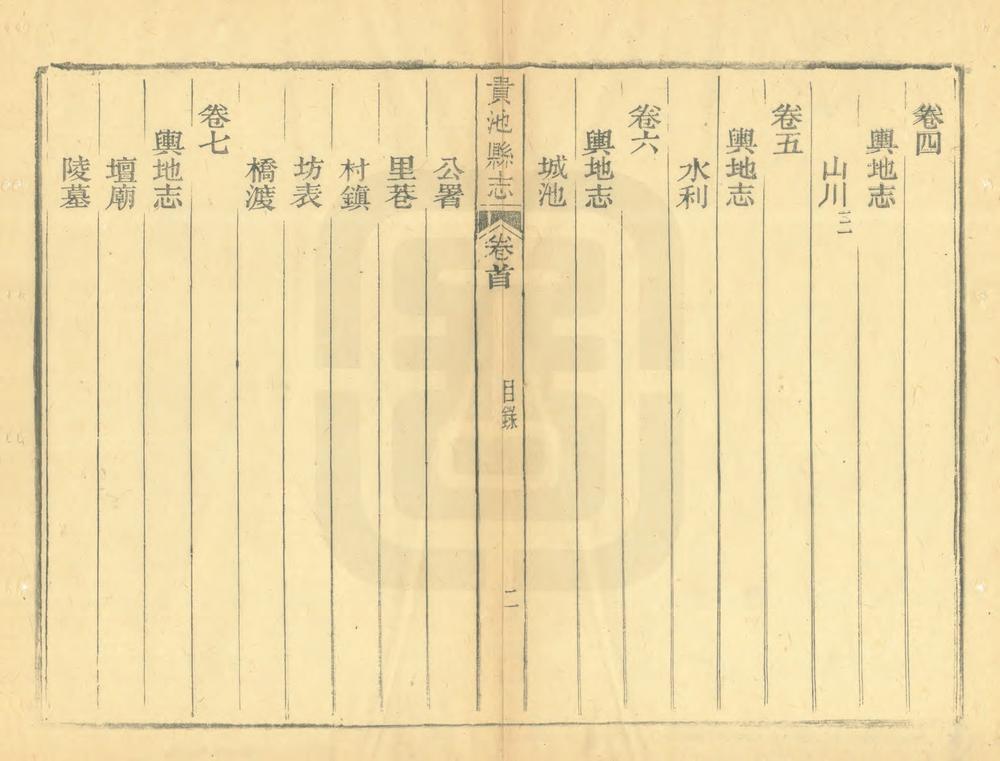 卷四
輿地志
山川
卷五
輿地志
水利
卷六
輿地志
城池
貴池縣志
卷首
目錄
二
公署
里巷
村鎭
坊表
橋渡
卷七
輿地志
壇廟
陵墓